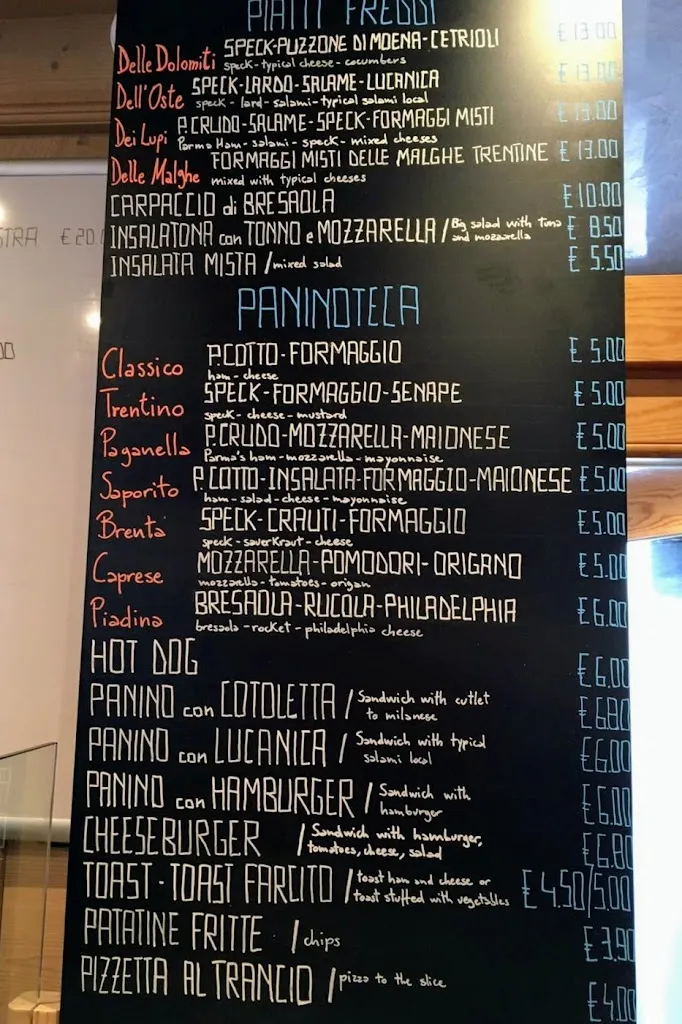 PIATTI FREDDI
Delle Dolomiti SPECK-PUZZONE DI MOENA-CETRIOLI € 13.00
speck-typical cheese-cocumbers
Dell'Oste SPECK-LARDO-SALAME-LUCANICA € 13.00
speck-lard-salami-typical salami local
Dei Lupi P.CRUDO-SALAME-SPECK-FORMAGGI MISTI € 13.00
Parma Ham-salami-speck-mixed cheeses
Delle Malghe FORMAGGI MISTI DELLE MALGHE TRENTINE € 13.00
mixed with typical cheeses
CARPACCIO di BRESAOLA € 10.00
INSALATONA con TONNO e MOZZARELLA / Big salad with tuna and mozzarella € 8.50
INSALATA MISTA / mixed salad € 5.50
STRA € 20.0
PANINOTECA
Classico P.COTTO-FORMAGGIO € 5.00
ham-cheese
Trentino SPECK-FORMAGGIO-SENAPE € 5.00
speck-cheese-mustard
Paganella P.CRUDO-MOZZARELLA-MAIONESE € 5.00
Parma's ham-mozzarella-mayonnaise
Saporito P.COTTO-INSALATA-FORMAGGIO-MAIONESE € 5.00
ham-salad-cheese-mayonnaise
Brenta SPECK-CRAUTI-FORMAGGIO € 5.00
speck-saverkraut-cheese
Caprese MOZZARELLA-POMODORI-ORIGANO € 5.00
mozzarella-tomatoes-origan
Piadina BRESAOLA-RUCOLA-PHILADELPHIA € 6.00
bresaola-rocket-philadelphia cheese
HOT DOG € 6.00
PANINO con COTOLETTA / Sandwich with cutlet to milanese € 6.80
PANINO con LUCANICA / Sandwich with typical salami local € 6.00
PANINO con HAMBURGER / Sandwich with hamburger € 6.00
CHEESEBURGER / Sandwich with hamburger, tomatoes, cheese, salad € 6.80
TOAST-TOAST FARCITO / toast ham and cheese or toast stuffed with vegetables € 4.50/5.00
PATATINE FRITTE / chips € 3.90
PIZZETTA AL TRANCIO / pizza to the slice € 4.00